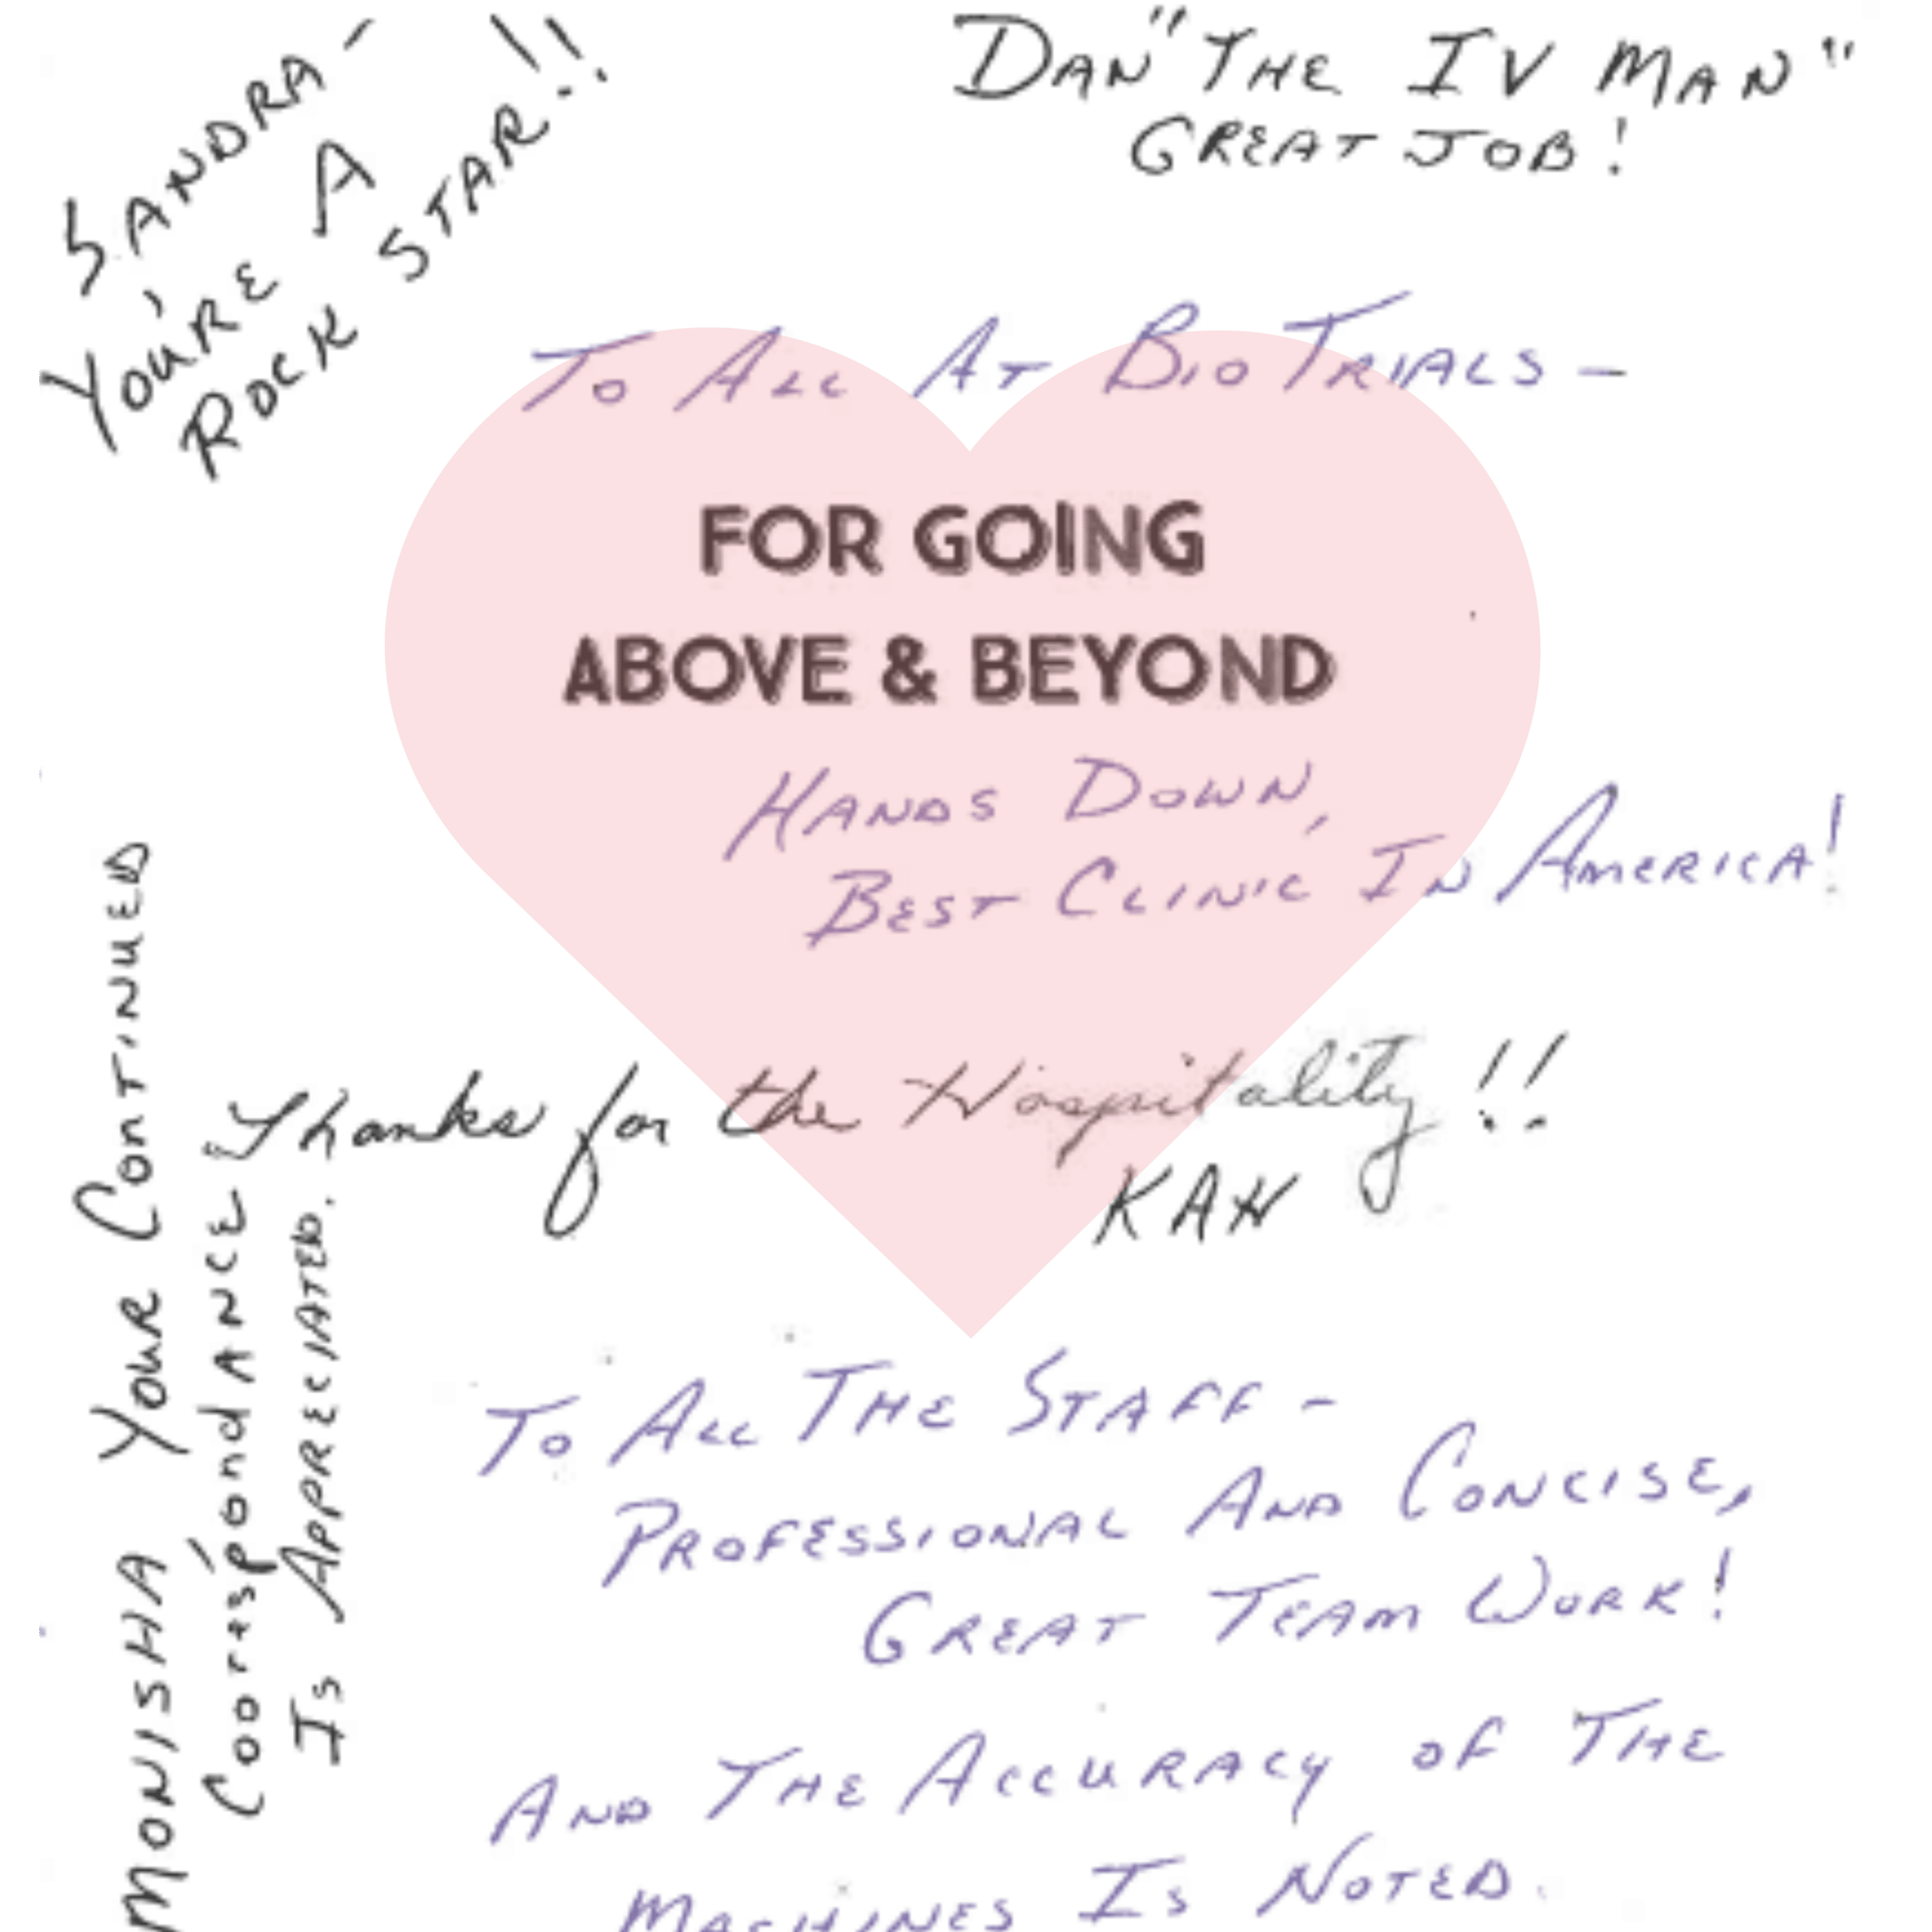 SANDRA -
YOU'RE A
ROCK STAR!!
DAN "THE IV MAN"
GREAT JOB!
TO ALL AT BIO TRIALS -
FOR GOING
ABOVE & BEYOND
HANDS DOWN,
BEST CLINIC IN AMERICA!
Thanks for the Hospitality!!
KAH
MONISHA YOUR CONTINUED
CoorespondANCE
IS APPRECIATED.
TO ALL THE STAFF -
PROFESSIONAL AND CONCISE,
GREAT TEAM WORK!
AND THE ACCURACY OF THE
MACHINES IS NOTED.